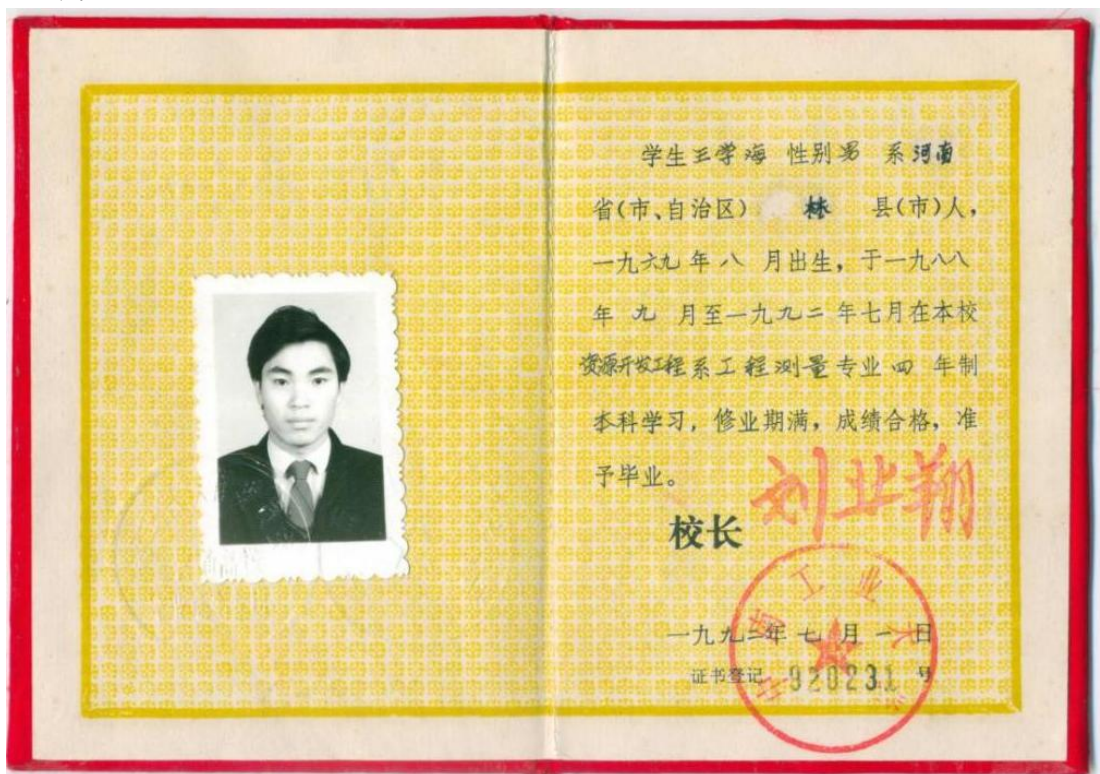 学生王学海 性别男 系河南
省(市、自治区) 林 县(市)人，
一九六九年八 月出生，于一九八八
年 九 月至一九九二年七月在本校
资源开发工程系工程测量专业四 年制
本科学习，修业期满，成绩合格，准
予毕业。
校长 刘业翔
一九九二年七月一日
证书登记 920231 号